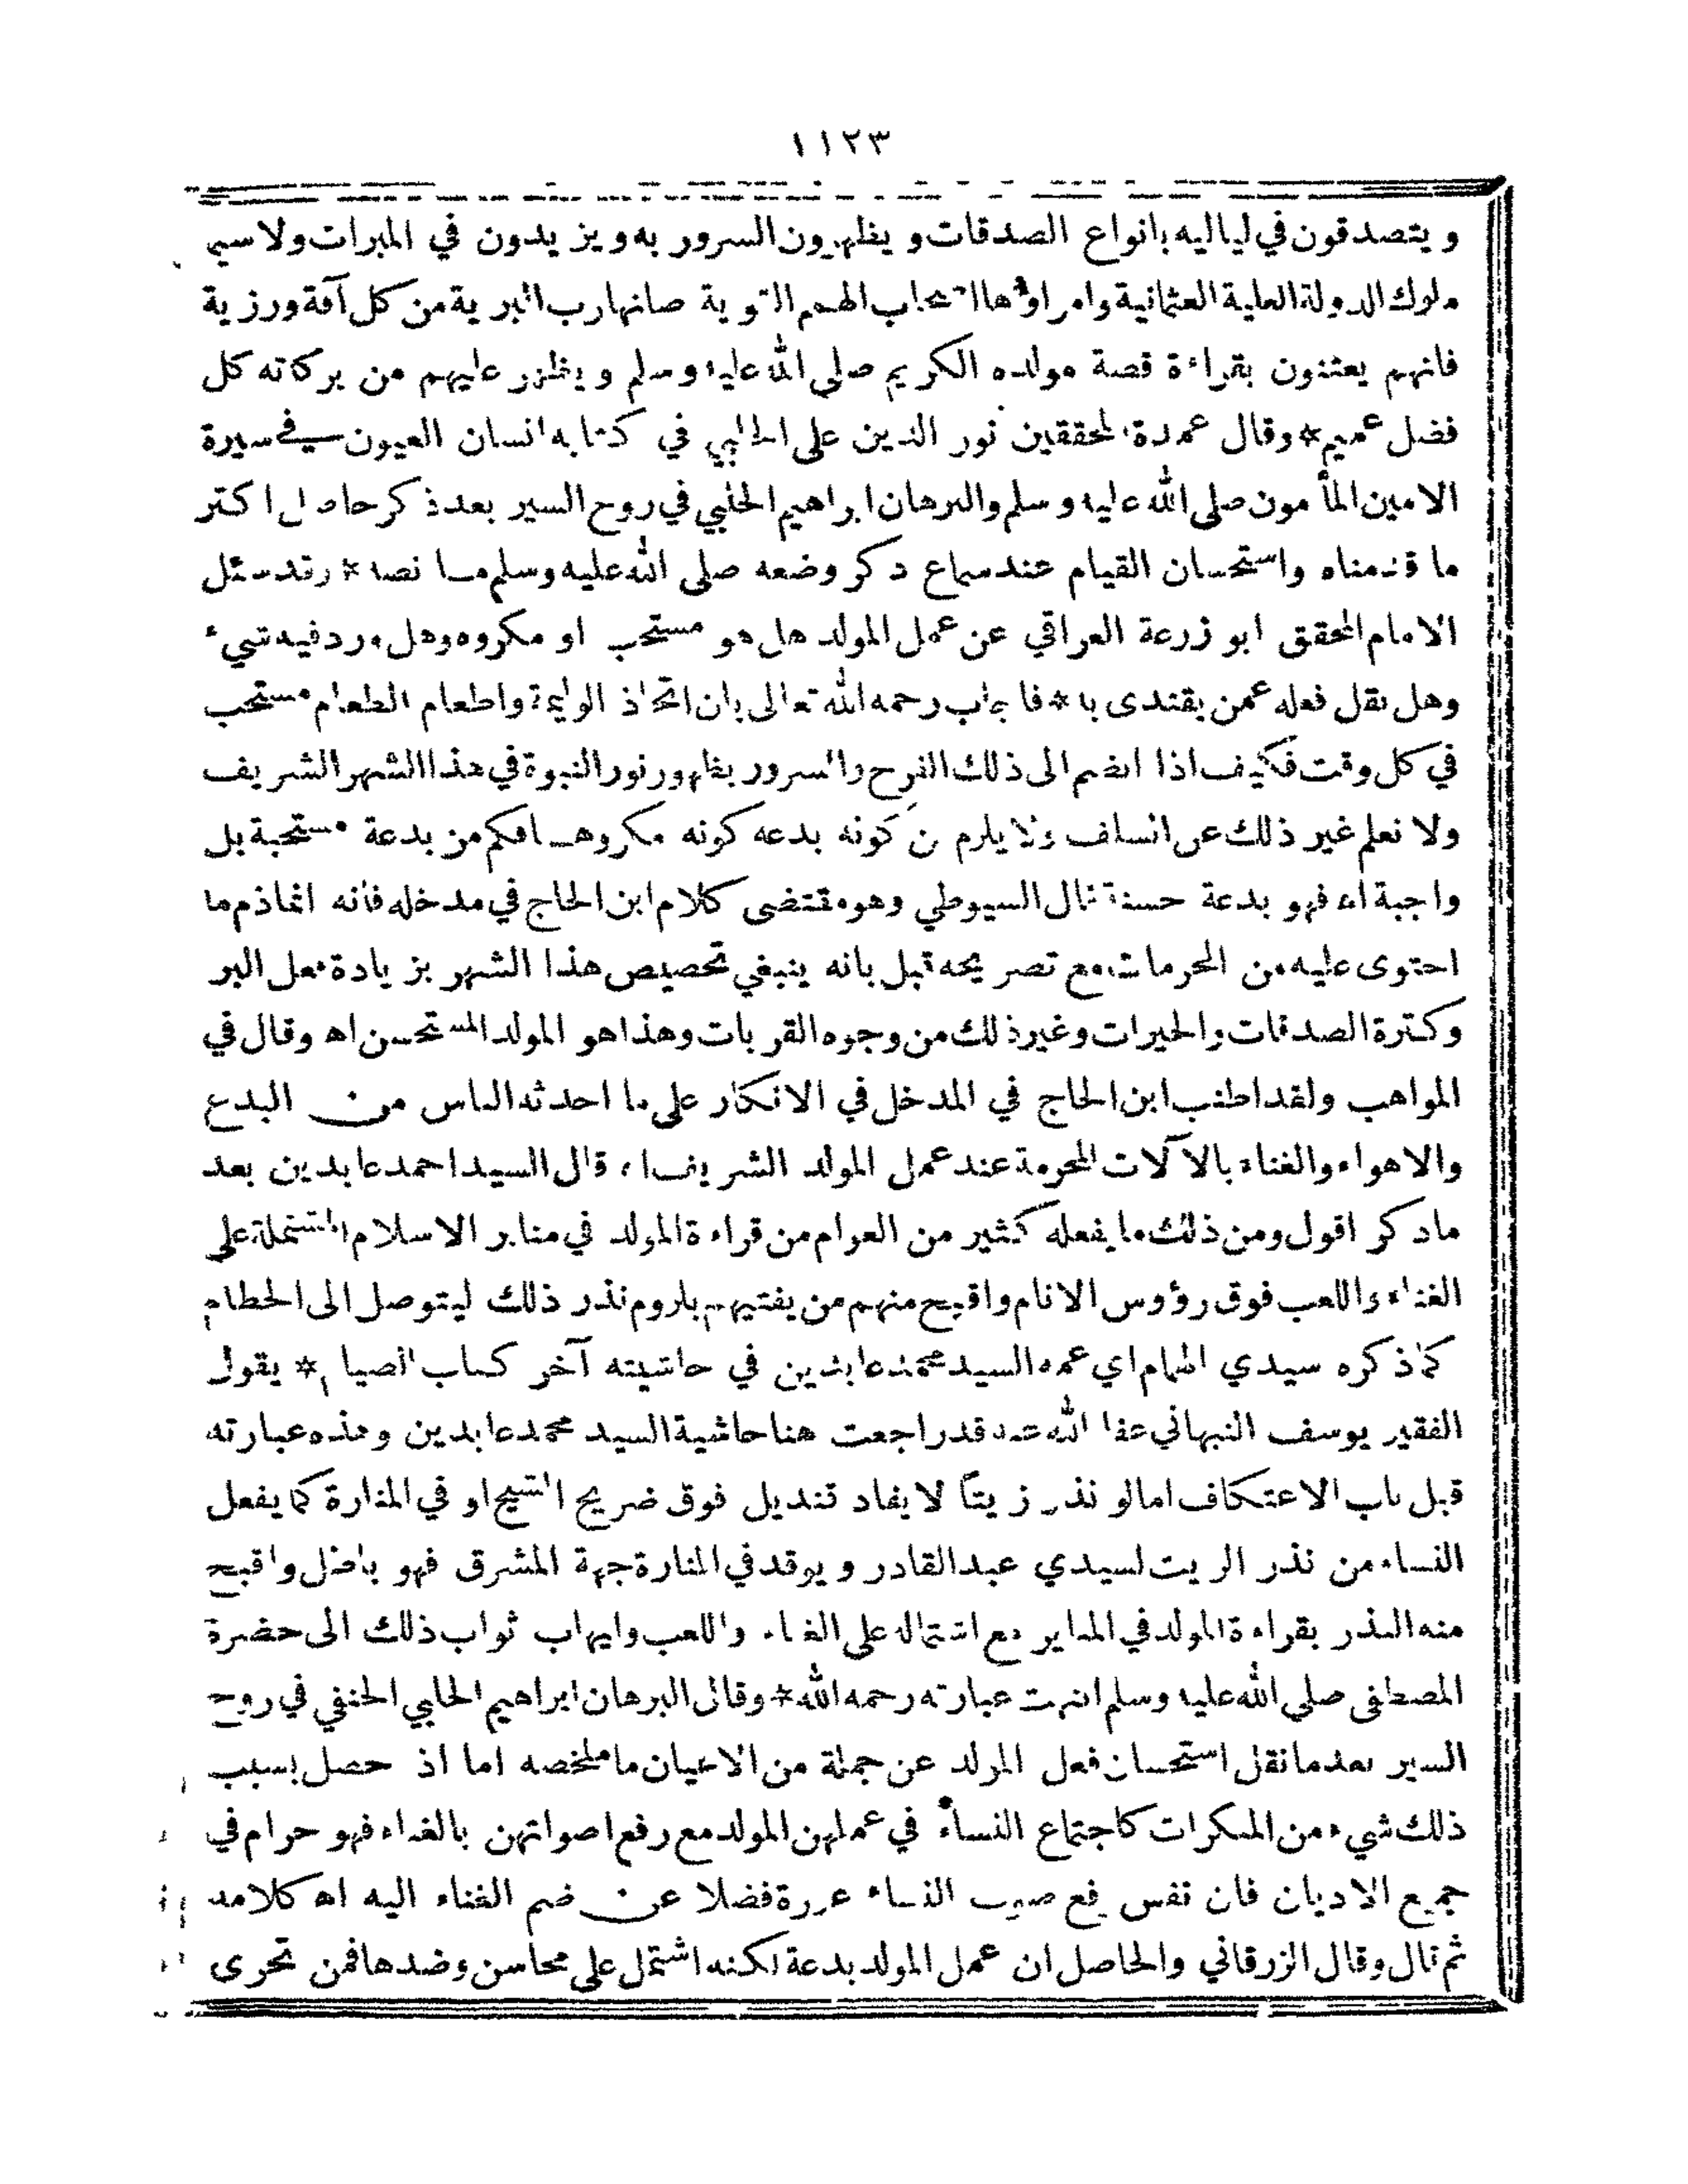 ١١٢٣
ويتصدقون في لياليه بانواع الصدقات ويظهرون السرور به ويزيدون في المبرات ولا سيما
ملوك الدولة العلية العثمانية وامراؤها اصحاب الهمم القوية صانها رب البرية من كل آفة ورزية
فانهم يعتنون بقراءة قصة مولده الكريم صلى الله عليه وسلم ويظهر عليهم من بركاته كل
فضل عميم * وقال عمدة المحققين نور الدين علي الحلبي في كتابه انسان العيون في سيرة
الامين المأمون صلى الله عليه وسلم والبرهان ابراهيم الحلبي في روح السير بعد ذكر حاصل اكثر
ما قدمناه واستحسان القيام عند سماع ذكر وضعه صلى الله عليه وسلم ما نصه * وقد سئل
الامام المحقق ابو زرعة العراقي عن عمل المولد هل هو مستحب او مكروه وهل ورد فيه شيء
وهل نقل فعله عمن يقتدى به * فاجاب رحمه الله تعالى بان اتخاذ الوليمة واطعام الطعام مستحب
في كل وقت فكيف اذا انضم الى ذلك الفرح والسرور بظهور نور النبوة في هذا الشهر الشريف
ولا نعلم غير ذلك عن السلف ولا يلزم من كونه بدعه كونه مكروها فكم من بدعة مستحبة بل
واجبة اه فهو بدعة حسنة قال السيوطي وهو مقتضى كلام ابن الحاج في مدخله فانه انما ذم ما
احتوى عليه من المحرمات مع تصريحه قبل بانه ينبغي تخصيص هذا الشهر بزيادة فعل البر
وكثرة الصدقات والخيرات وغير ذلك من وجوه القربات وهذا هو المولد المستحسن اه وقال في
المواهب ولقد اطنب ابن الحاج في المدخل في الانكار على ما احدثه الناس من البدع
والاهواء والغناء بالآلات المحرمة عند عمل المولد الشريف اه قال السيد احمد عابدين بعد
ما ذكر اقول ومن ذلك ما يفعله كثير من العوام من قراءة المولد في منابر الاسلام المشتملة على
الغناء واللعب فوق رؤوس الانام واقبح منهم من يفتيهم بلزوم نذر ذلك ليتوصل الى الحطام
كما ذكره سيدي الهمام اي عمه السيد محمد عابدين في حاشيته آخر كتاب الصيام * يقول
الفقير يوسف النبهاني عفا الله عنه قد راجعت هنا حاشية السيد محمد عابدين وهذه عبارته
قبل باب الاعتكاف اما لو نذر زيتاً لايقاد قنديل فوق ضريح الشيخ او في المنارة كما يفعل
النساء من نذر الزيت لسيدي عبد القادر ويوقد في المنارة جهة المشرق فهو باطل واقبح
منه النذر بقراءة المولد في المنابر مع اشتماله على الغناء واللعب وايهاب ثواب ذلك الى حضرة
المصطفى صلى الله عليه وسلم انتهت عبارته رحمه الله * وقال البرهان ابراهيم الحلبي الحنفي في روح
السير بعد ما نقل استحسان فعل المولد عن جملة من الاعيان ما ملخصه اما اذ حصل بسبب
ذلك شيء من المنكرات كاجتماع النساء في عملهن المولد مع رفع اصواتهن بالغناء فهو حرام في
جميع الاديان فان نفس رفع صوت النساء عورة فضلا عن ضم الغناء اليه اه كلامه
ثم قال وقال الزرقاني والحاصل ان عمل المولد بدعة لكنه اشتمل على محاسن وضدها فمن تحرى